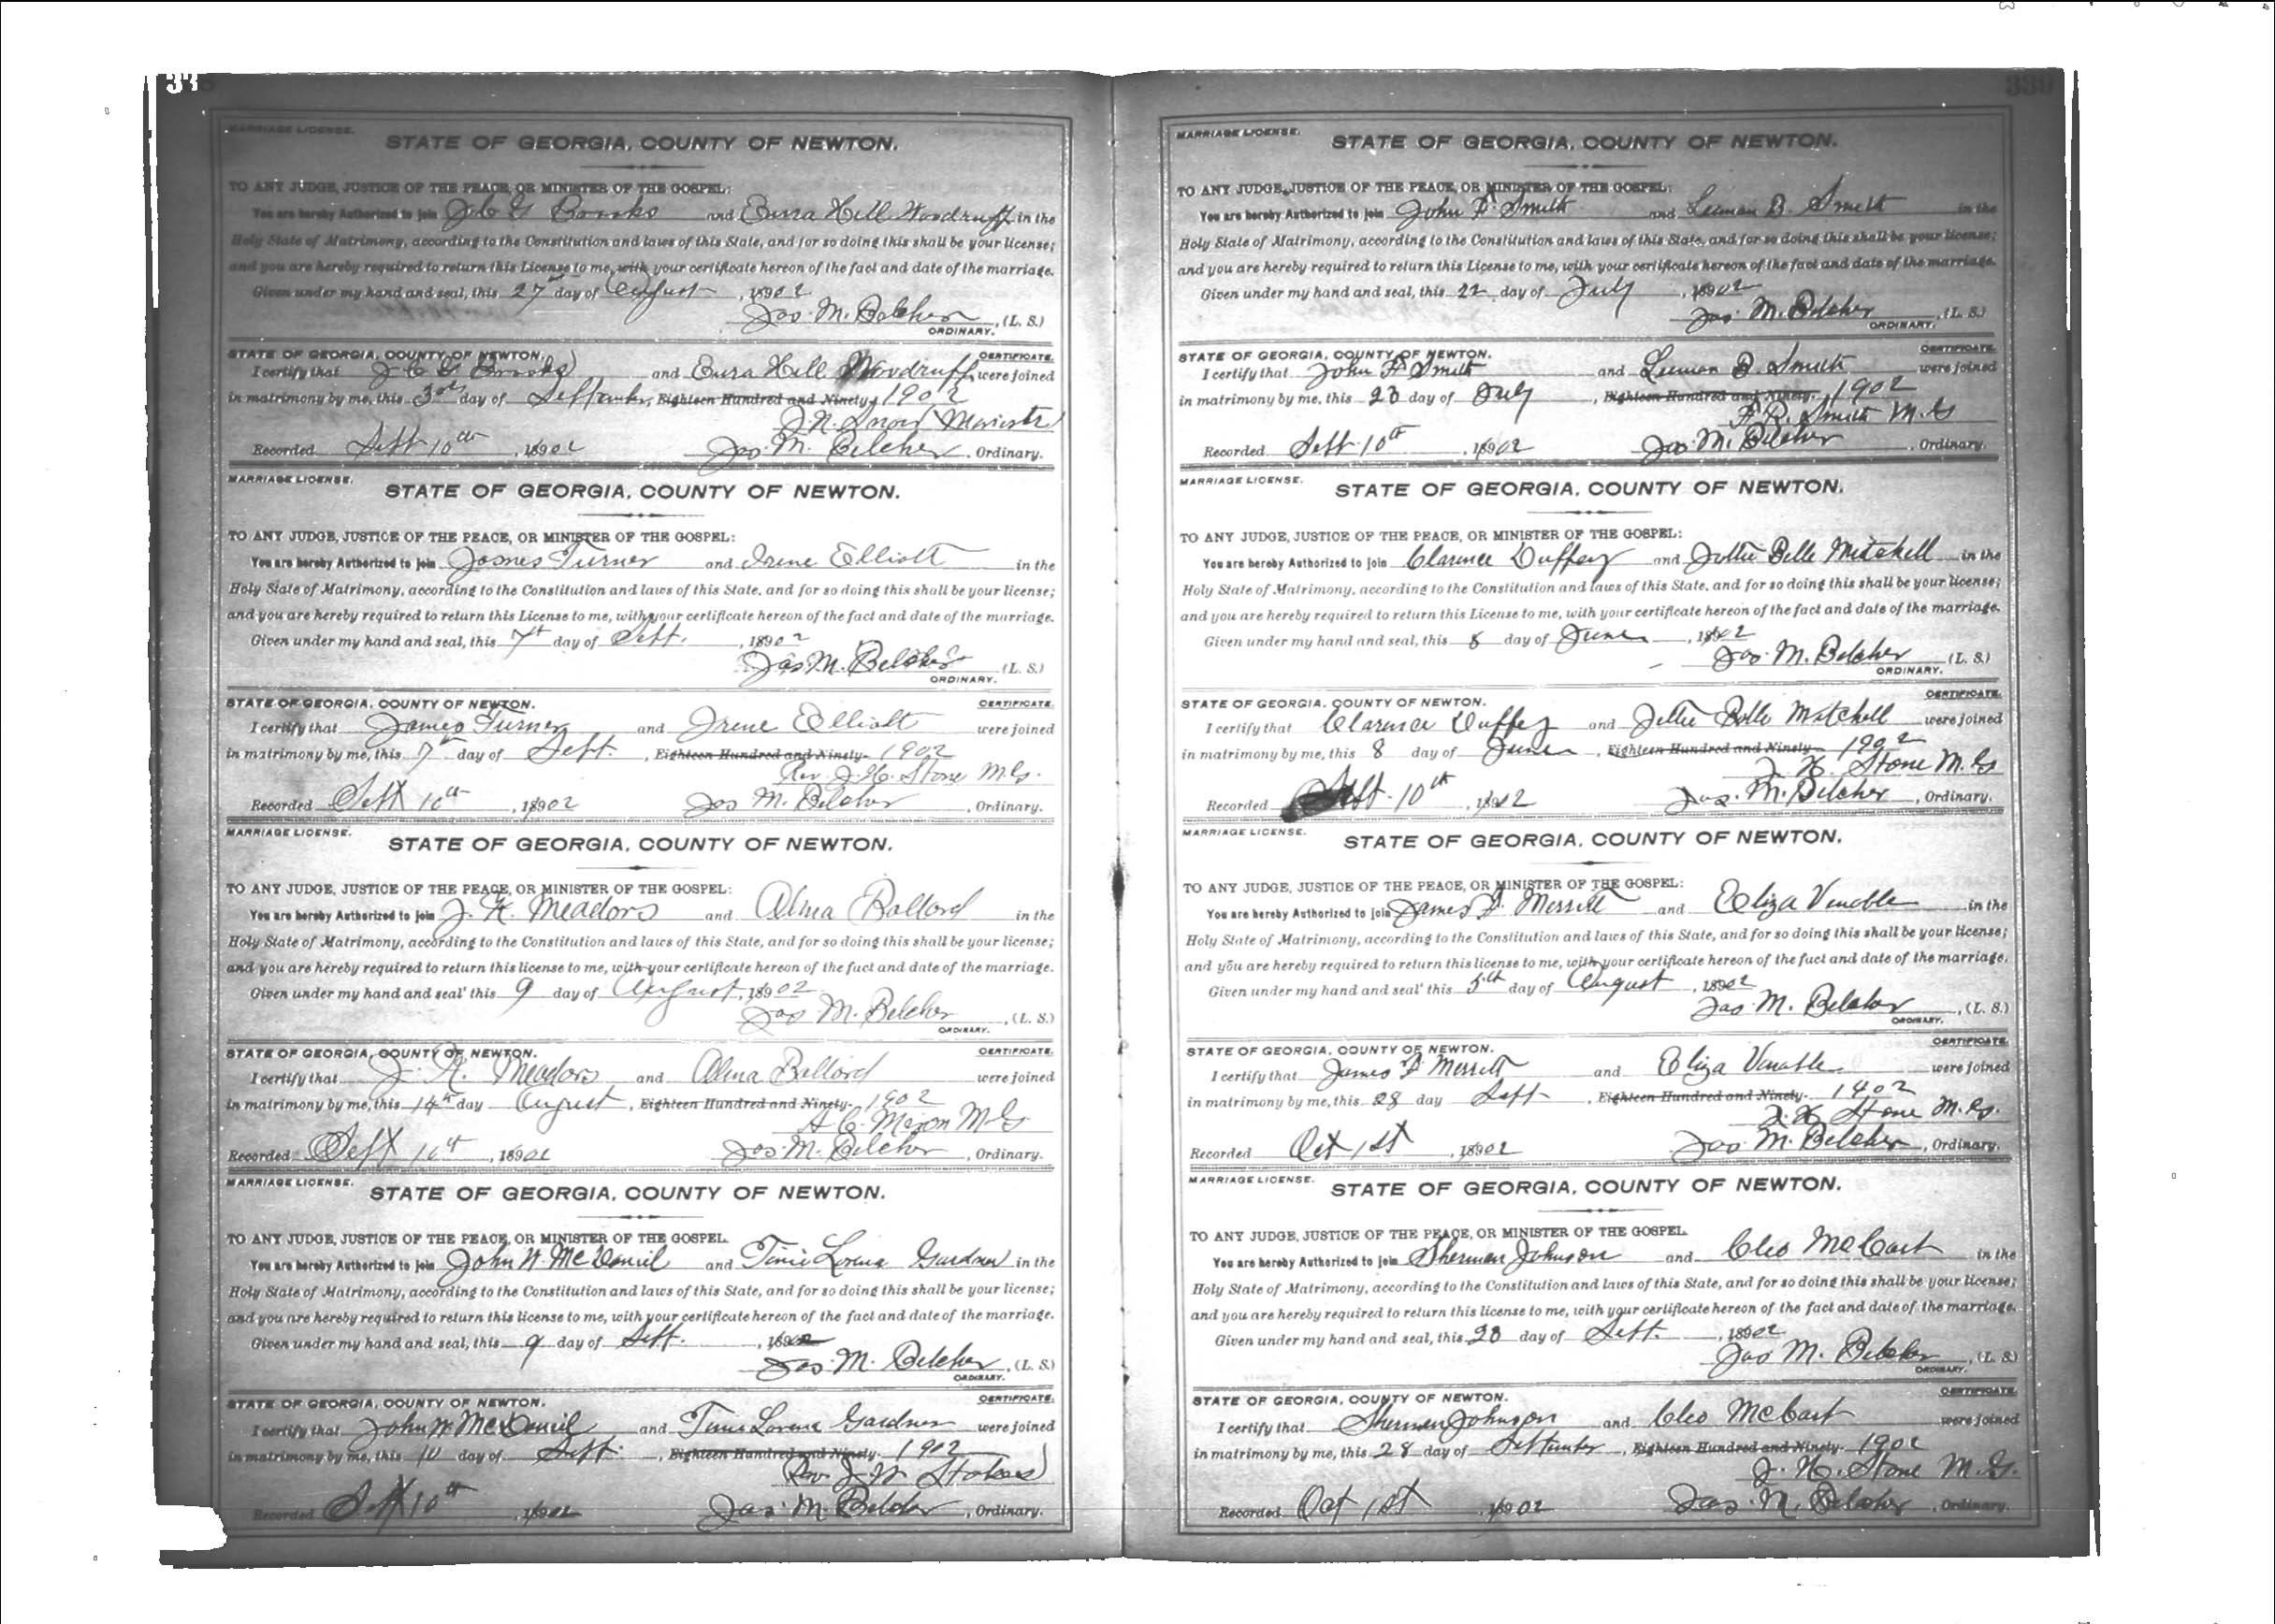 338
MARRIAGE LICENSE.
STATE OF GEORGIA, COUNTY OF NEWTON.
TO ANY JUDGE, JUSTICE OF THE PEACE, OR MINISTER OF THE GOSPEL:
You are hereby Authorized to join J C G Brooks and Hill Woodruff in the
Holy State of Matrimony, according to the Constitution and laws of this State, and for so doing this shall be your license;
and you are hereby required to return this License to me, with your certificate hereon of the fact and date of the marriage.
Given under my hand and seal, this 27th day of August, 18902
Jas. M. Belcher, (L. S.)
ORDINARY.
STATE OF GEORGIA, COUNTY OF NEWTON. CERTIFICATE.
I certify that J C G Brooks and Hill Woodruff were joined
in matrimony by me, this 3rd day of September, Eighteen Hundred and Ninety- 1902
J. N. Snow
Recorded Sept 10th, 18902 Jas. M. Belcher, Ordinary.
MARRIAGE LICENSE.
STATE OF GEORGIA, COUNTY OF NEWTON.
TO ANY JUDGE, JUSTICE OF THE PEACE, OR MINISTER OF THE GOSPEL:
You are hereby Authorized to join James Turner and Irene Elliott in the
Holy State of Matrimony, according to the Constitution and laws of this State, and for so doing this shall be your license;
and you are hereby required to return this License to me, with your certificate hereon of the fact and date of the marriage.
Given under my hand and seal, this 7th day of Sept., 18902
Jas M. Belcher (L. S.)
ORDINARY.
STATE OF GEORGIA, COUNTY OF NEWTON. CERTIFICATE.
I certify that James Turner and Irene Elliott were joined
in matrimony by me, this 7th day of Sept., Eighteen Hundred and Ninety- 1902
Rev. J. H. Stone M.G.
Recorded Sept 10th, 18902 Jas M. Belcher, Ordinary.
MARRIAGE LICENSE.
STATE OF GEORGIA, COUNTY OF NEWTON.
TO ANY JUDGE, JUSTICE OF THE PEACE, OR MINISTER OF THE GOSPEL:
You are hereby Authorized to join J. Meadors and Alma Ballard in the
Holy State of Matrimony, according to the Constitution and laws of this State, and for so doing this shall be your license;
and you are hereby required to return this license to me, with your certificate hereon of the fact and date of the marriage.
Given under my hand and seal this 9 day of August, 18902
Jas M. Belcher, (L. S.)
ORDINARY.
STATE OF GEORGIA, COUNTY OF NEWTON. CERTIFICATE.
I certify that J. Meadors and Alma Ballard were joined
in matrimony by me, this 14th day August, Eighteen Hundred and Ninety- 1902
C. Mixon M.G
Recorded Sept 10th, 18902 Jas. M. Belcher, Ordinary.
MARRIAGE LICENSE.
STATE OF GEORGIA, COUNTY OF NEWTON.
TO ANY JUDGE, JUSTICE OF THE PEACE, OR MINISTER OF THE GOSPEL.
You are hereby Authorized to join John W. McDaniel and Lorena Gardner in the
Holy State of Matrimony, according to the Constitution and laws of this State, and for so doing this shall be your license;
and you are hereby required to return this license to me, with your certificate hereon of the fact and date of the marriage.
Given under my hand and seal, this 9 day of Sept., 18902
Jas. M. Belcher, (L. S.)
ORDINARY.
STATE OF GEORGIA, COUNTY OF NEWTON. CERTIFICATE.
I certify that John W McDaniel and Lorena Gardner were joined
in matrimony by me, this 10 day of Sept., Eighteen Hundred and Ninety- 1902
Rev J. W
Recorded Sept 10th, 18902 Jas. M. Belcher, Ordinary.
339
MARRIAGE LICENSE.
STATE OF GEORGIA, COUNTY OF NEWTON.
TO ANY JUDGE, JUSTICE OF THE PEACE, OR MINISTER OF THE GOSPEL:
You are hereby Authorized to join John F. Smith and B. Smith in the
Holy State of Matrimony, according to the Constitution and laws of this State, and for so doing this shall be your license;
and you are hereby required to return this License to me, with your certificate hereon of the fact and date of the marriage.
Given under my hand and seal, this 22 day of July, 18902
Jas. M. Belcher, (L. S.)
ORDINARY.
STATE OF GEORGIA, COUNTY OF NEWTON. CERTIFICATE.
I certify that John F Smith and B. Smith were joined
in matrimony by me, this 23 day of July, Eighteen Hundred and Ninety- 1902
F. R. Smith M.G
Recorded Sept. 10th, 18902 Jas. M. Belcher, Ordinary.
MARRIAGE LICENSE.
STATE OF GEORGIA, COUNTY OF NEWTON.
TO ANY JUDGE, JUSTICE OF THE PEACE, OR MINISTER OF THE GOSPEL:
You are hereby Authorized to join Clarence Duffey and Belle Mitchell in the
Holy State of Matrimony, according to the Constitution and laws of this State, and for so doing this shall be your license;
and you are hereby required to return this License to me, with your certificate hereon of the fact and date of the marriage.
Given under my hand and seal, this 8 day of June, 18902
Jas. M. Belcher (L. S.)
ORDINARY.
STATE OF GEORGIA, COUNTY OF NEWTON. CERTIFICATE.
I certify that Clarence Duffey and Belle Mitchell were joined
in matrimony by me, this 8 day of June, Eighteen Hundred and Ninety- 1902
J. H. Stone M.G
Recorded Sept. 10th, 18902 Jas. M. Belcher, Ordinary.
MARRIAGE LICENSE.
STATE OF GEORGIA, COUNTY OF NEWTON.
TO ANY JUDGE, JUSTICE OF THE PEACE, OR MINISTER OF THE GOSPEL:
You are hereby Authorized to join James Merrett and Eliza Venable in the
Holy State of Matrimony, according to the Constitution and laws of this State, and for so doing this shall be your license;
and you are hereby required to return this license to me, with your certificate hereon of the fact and date of the marriage.
Given under my hand and seal this 5th day of August, 18902
Jas. M. Belcher, (L. S.)
ORDINARY.
STATE OF GEORGIA, COUNTY OF NEWTON. CERTIFICATE.
I certify that James Merrett and Eliza Venable were joined
in matrimony by me, this 28 day Sept, Eighteen Hundred and Ninety- 1902
J. H. Stone M.G.
Recorded Oct 1st, 18902 Jas M. Belcher, Ordinary.
MARRIAGE LICENSE.
STATE OF GEORGIA, COUNTY OF NEWTON.
TO ANY JUDGE, JUSTICE OF THE PEACE, OR MINISTER OF THE GOSPEL.
You are hereby Authorized to join Sherman Johnson and Cleo McCart in the
Holy State of Matrimony, according to the Constitution and laws of this State, and for so doing this shall be your license;
and you are hereby required to return this license to me, with your certificate hereon of the fact and date of the marriage.
Given under my hand and seal, this 28 day of Sept., 18902
Jas M. Belcher, (L. S.)
ORDINARY.
STATE OF GEORGIA, COUNTY OF NEWTON. CERTIFICATE.
I certify that Sherman Johnson and Cleo McCart were joined
in matrimony by me, this 28 day of September, Eighteen Hundred and Ninety- 1902
J. H. Stone M.G.
Recorded Oct 1st, 18902 Jas. M. Belcher, Ordinary.